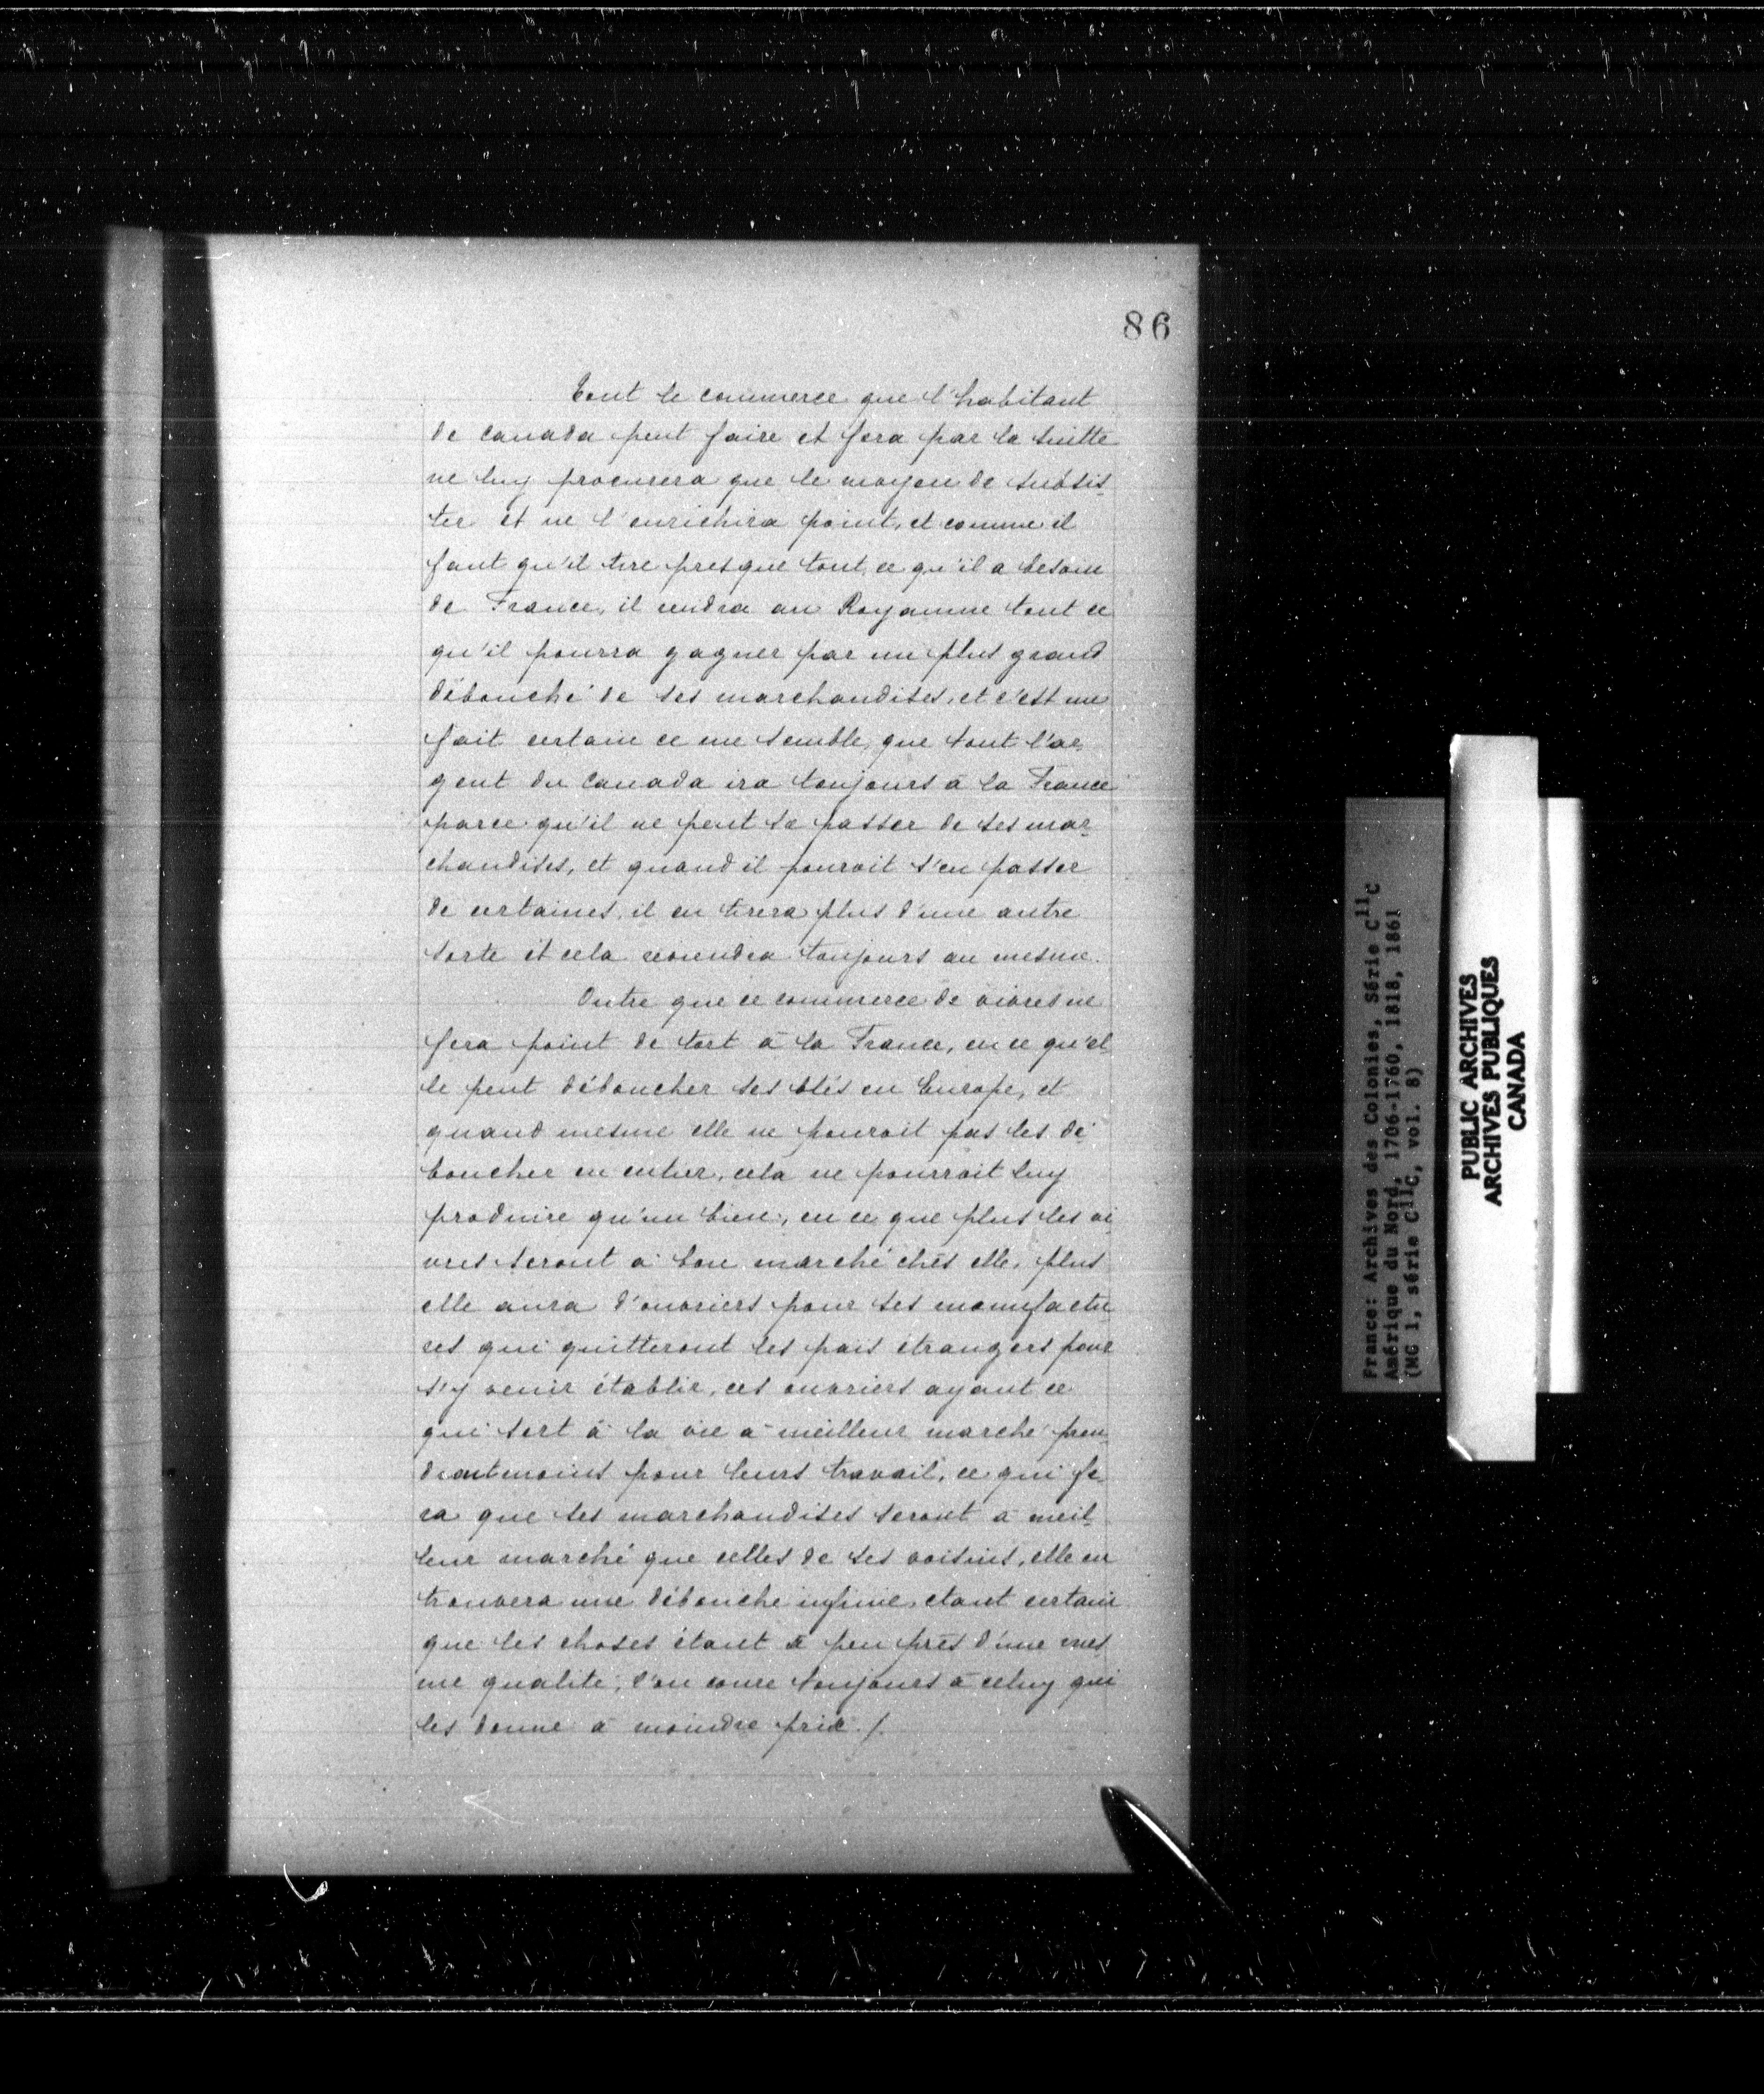 86
Tout le commerce que l'habitant
de Canada peut faire et fera par la suitte
ne luy procurera que le moyen de subsis-
ter et ne l'enrichira point, et comme il
faut qu'il tire presque tout ce qu'il a besoin
de France, il rendra au Royaume tout ce
qu'il pourra gagner par un plus grand
débouché de ses marchandises, et c'est un
fait certain ce me semble, que tout l'ar-
gent du Canada ira toujours à la France
parce qu'il ne peut se passer de ses mar-
chandises, et quand il pouroit s'en passer
de certaines, il en tirera plus d'une autre
sorte et cela reviendra toujours au mesme.
Outre que ce commerce de vivres ne
fera point de tort à la France, en ce qu'el-
le peut déboucher ses blés en Europe, et
quand mesme elle ne pouroit pas les dé-
boucher en entier, cela ne pourroit luy
produire qu'un bien, en ce que plus les vi-
vres seront à bon marché chés elle, plus
elle aura d'ouvriers pour ses manufactu-
res qui quitteront les païs étrangers pour
s'y venir établir, ces ouvriers ayant ce
qui sert à la vie à meilleur marché pren-
dront moins pour leurs travail, ce qui fe-
ra que ses marchandises seront à meil-
leur marché que celles de ses voisins, elle en
trouvera une débouche infinie, etant certain
que les choses étant à peu près d'une mes-
me qualité, l'on coure toujours à celuy qui
les donne à moindre prix ./.
France: Archives des Colonies, Série C11C
Amérique du Nord, 1706-1760, 1818, 1861
(MG 1, série C11C, vol. 8)
PUBLIC ARCHIVES
ARCHIVES PUBLIQUES
CANADA